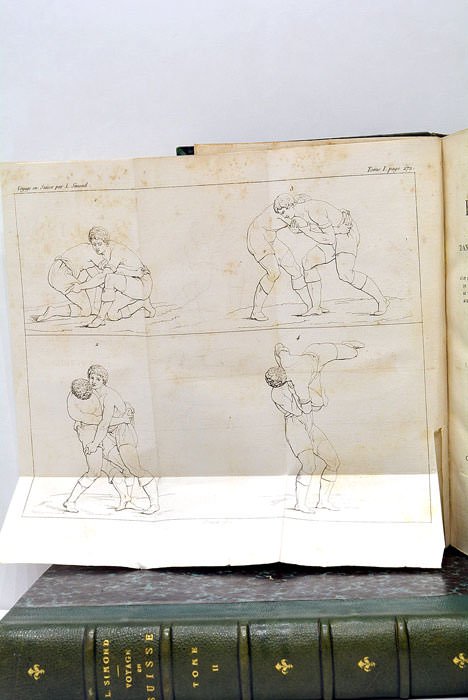 Voyage en Suisse par L. Simond.
Tome I. page 272.
3
2
4
L. SIMOND
VOYAGE
EN
SUISSE
TOME
II